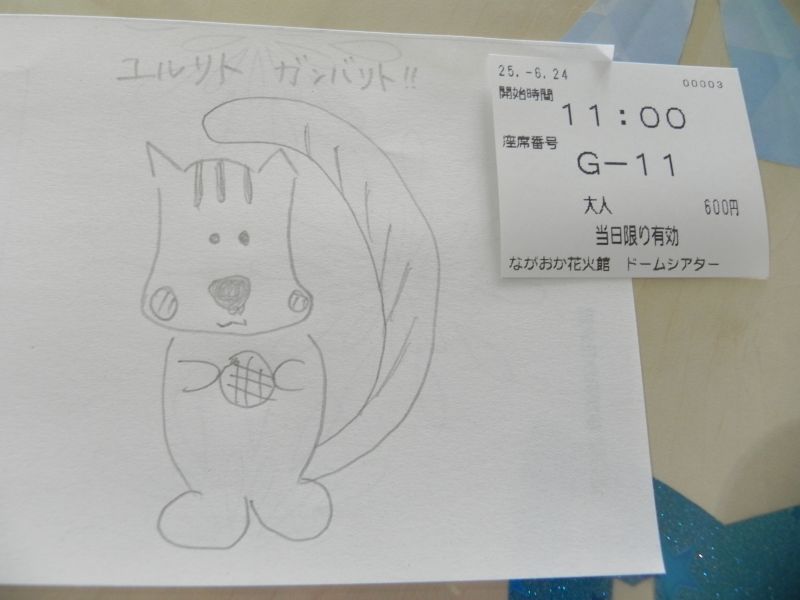 ユルリト ガンバリト!!
25.-6.24
00003
開始時間
11:00
座席番号
G-11
大人 600円
当日限り有効
ながおか花火館 ドームシアター